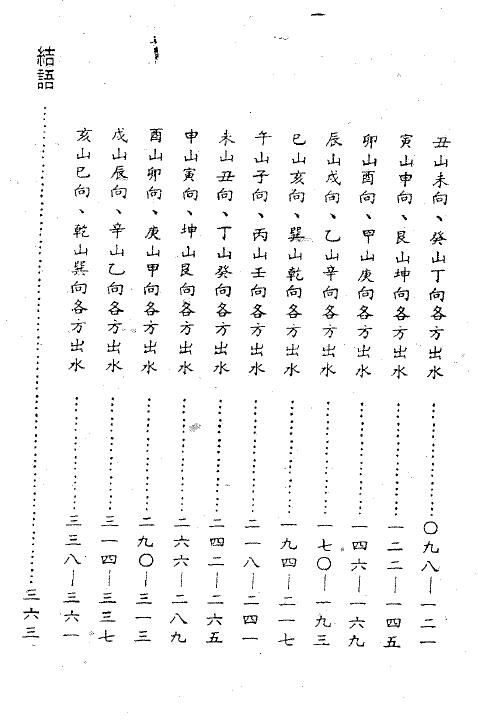 丑山未向、癸山丁向各方出水………………〇九八—一二一
寅山申向、艮山坤向各方出水………………一二二—一四五
卯山酉向、甲山庚向各方出水………………一四六—一六九
辰山戌向、乙山辛向各方出水………………一七〇—一九三
巳山亥向、巽山乾向各方出水………………一九四—二一七
午山子向、丙山壬向各方出水………………二一八—二四一
未山丑向、丁山癸向各方出水………………二四二—二六五
申山寅向、坤山艮向各方出水………………二六六—二八九
酉山卯向、庚山甲向各方出水………………二九〇—三一三
戌山辰向、辛山乙向各方出水………………三一四—三三七
亥山巳向、乾山巽向各方出水………………三三八—三六一
結語………………三六三